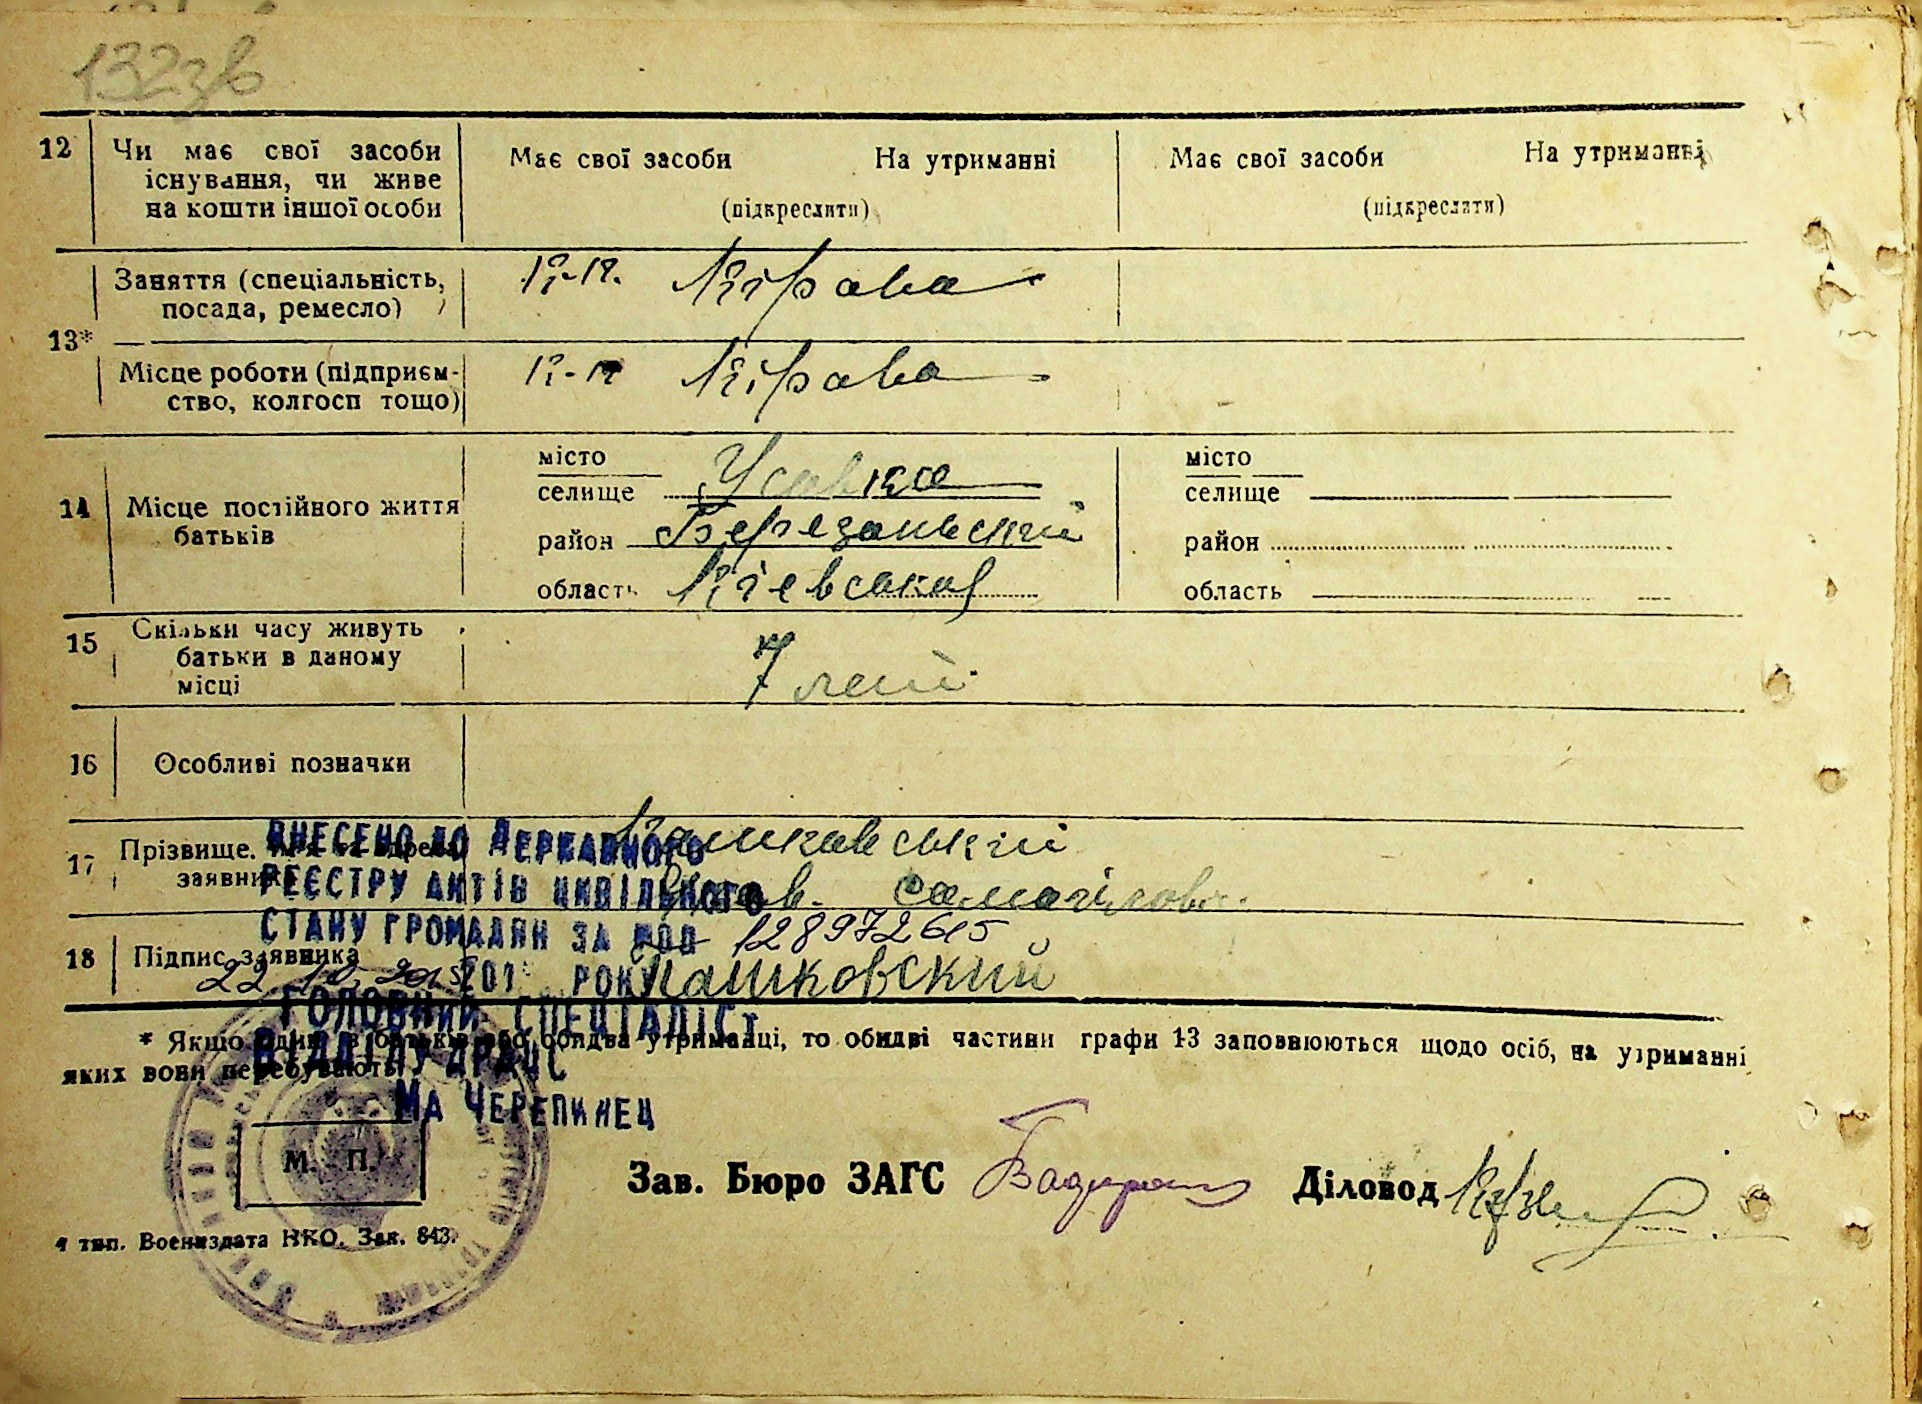 132зв
12 Чи має свої засоби існування, чи живе на кошти іншої особи
Має свої засоби На утриманні
(підкреслити)
Має свої засоби На утриманні
(підкреслити)
13*
Заняття (спеціальність, посада, ремесло)
к-к. Кірова
Місце роботи (підприєм-
ство, колгосп тощо)
к-к Кірова
14 Місце постійного життя батьків
місто
селище Усовка
район Березаньский
область Кіевская
місто
селище
район
область
15 Скільки часу живуть батьки в даному місці
7 лет
16 Особливі позначки
17 Прізвище, ім'я та адреса заявника
18 Підпис заявника
Пашковский
ВНЕСЕНО ДО ДЕРЖАВНОГО
РЕЄСТРУ АКТІВ ЦИВІЛЬНОГО
СТАНУ ГРОМАДЯН ЗА 128972615
22. 10. 201 РОКУ
ГОЛОВНИЙ СПЕЦІАЛІСТ
ВІДДІЛУ ДРАЦС
МА ЧЕРЕПИНЕЦ
* Якщо один з батьків або обидва утриманці, то обидві частини графи 13 заповнюються щодо осіб, на утриманні
яких вони перебувають.
М. П.
Зав. Бюро ЗАГС
Діловод
тип. Воениздата НКО. Зак. 843.